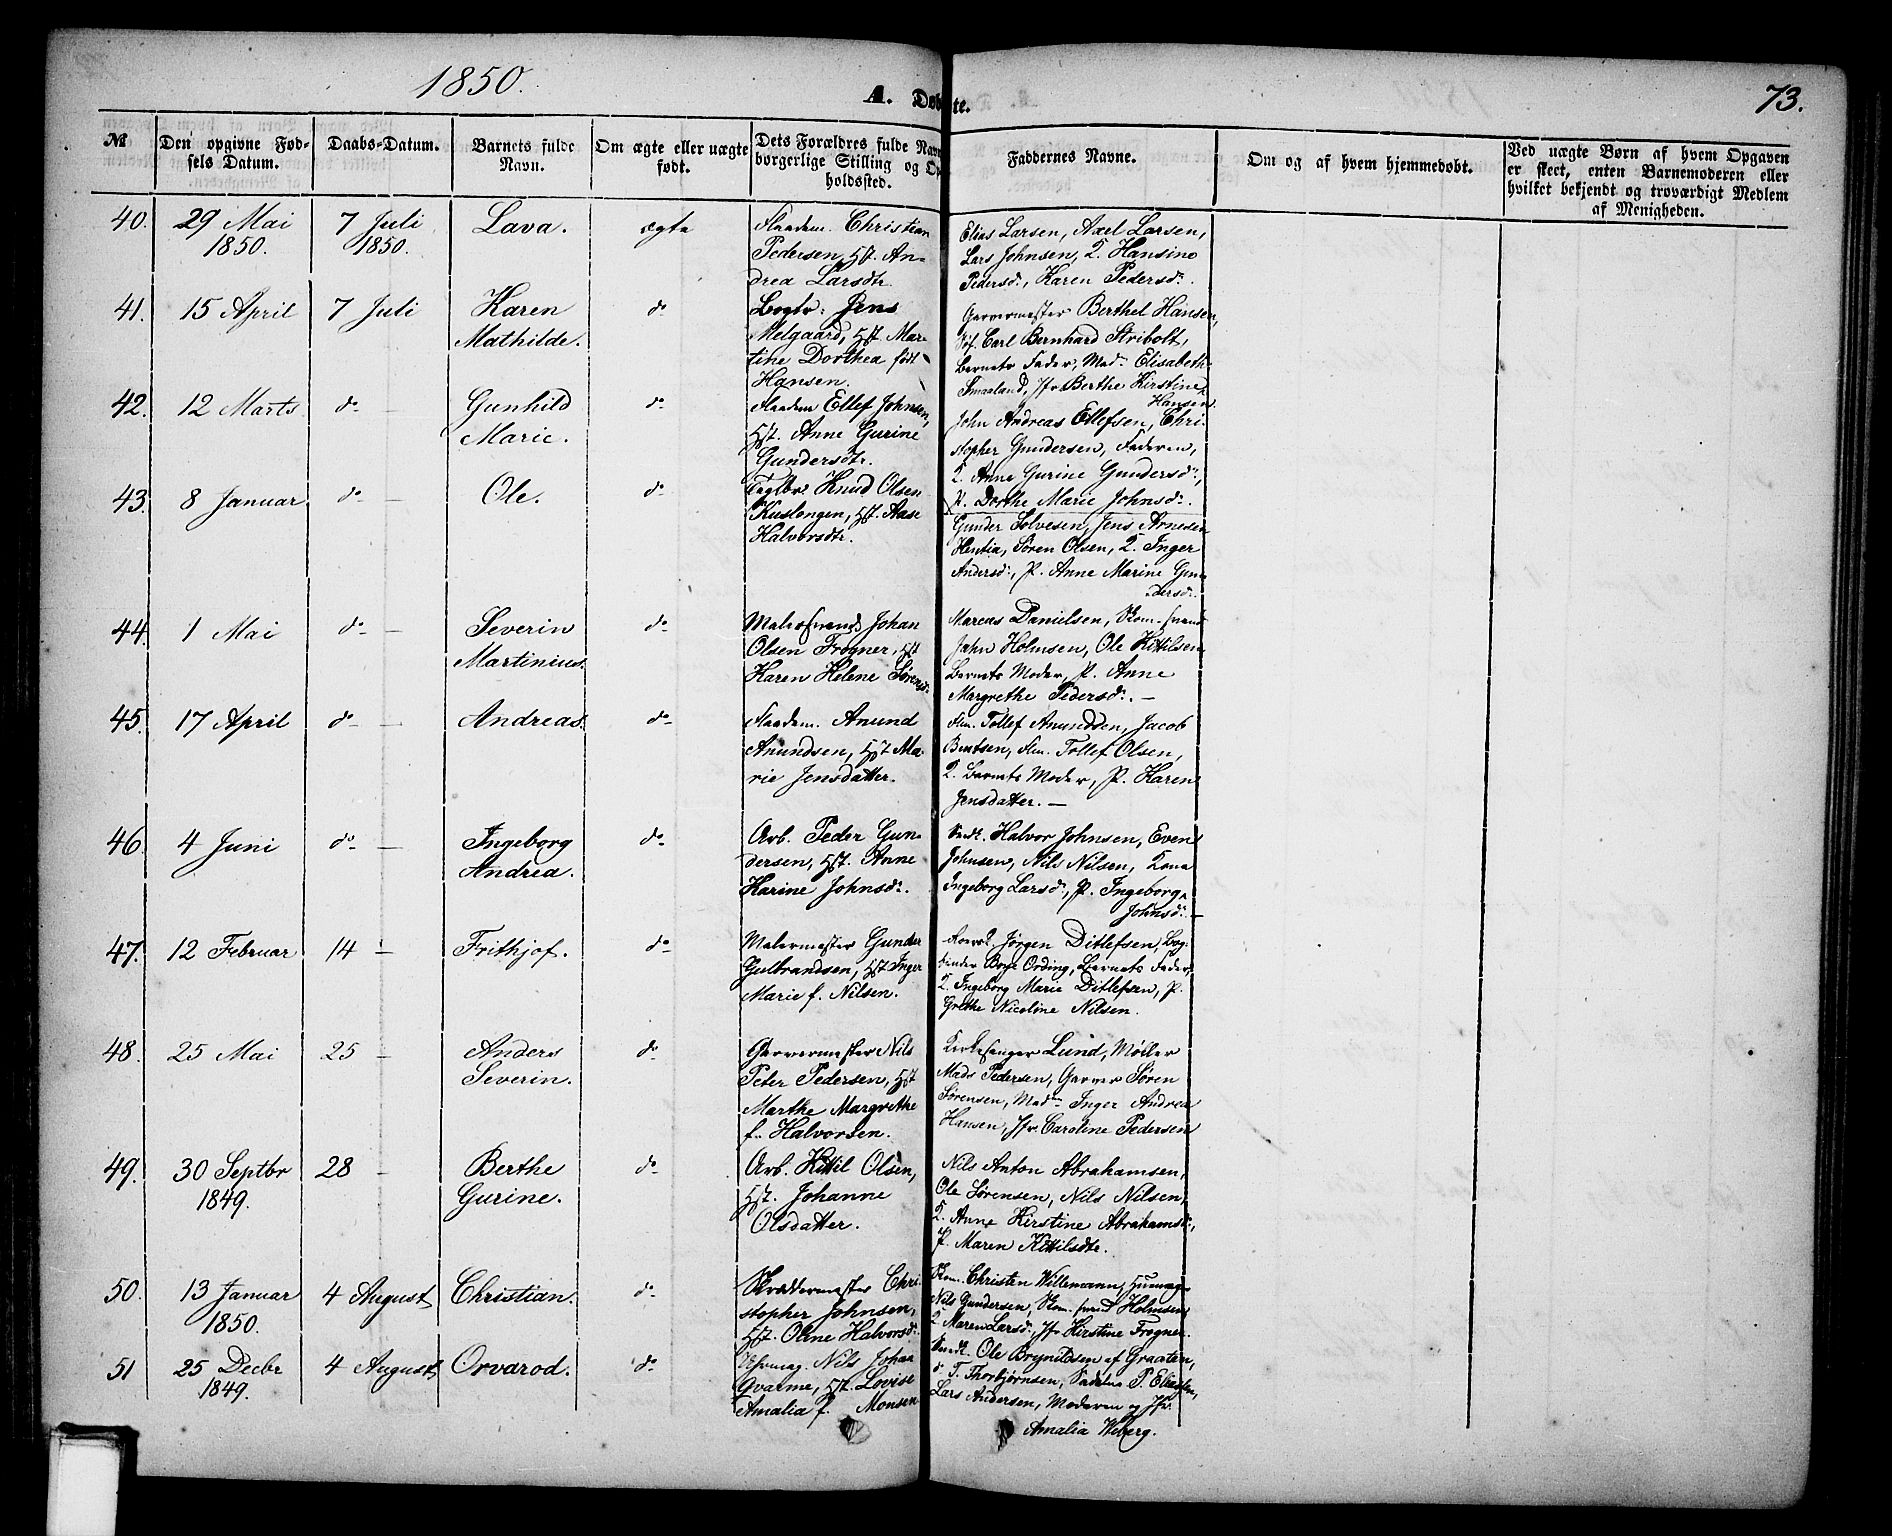 1850.
A. Døbte.
73.
№
Den opgivne Fød-
sels Datum.
Daabs-Datum.
Barnets fulde
Navn.
Om ægte eller uægte
født.
Dets Forældres fulde Navn
borgerlige Stilling og Op
holdssted.
Faddernes Navne.
Om og af hvem hjemmedøbt.
Ved uægte Børn af hvem Opgaven
er skeet, enten Barnemoderen eller
hvilket bekjendt og troværdigt Medlem
af Menigheden.
40. 29 Mai 7 Juli Lava. ægte
1850. 1850.
Flaadem. Christian
Pedersen, Hst. An-
drea Larsdtr.
Elias Larsen, Axel Larsen,
Lars Johnsen, K. Hansine
Pedersd:, Karen Pedersd:
41. 15 April 7 Juli Karen do
Mathilde.
Bogtr: Jens
Melgaard, Hst. Mar-
tine Dorthea født
Hansen.
Garvermester Berthel Hansen,
Carl Bernhard Stribolt,
Barnets Fader, Mad: Elisabeth
Smaaland, Jfr Berthe Kirstine
Hansen.
42. 12 Marts do — Gunhild do
Marie.
Flaadem Ellef Johnsen,
Hst. Anne Gurine
Gundersdtr.
John Andreas Ellefsen, Chri-
stopher Gundersen, Faderen,
K. Anne Gurine Gundersd:,
P. Dorthe Marie Johnsd:.
43. 8 Januar do — Ole. do
Knud Olsen
Hst. Aase
Halvorsdtr.
Gunder Solvesen, Jens Arnesen
Søren Olsen, K. Inger
Andersd:, P. Anne Marine Gun-
dersd:.
44. 1 Mai do — Severin do
Martinius.
Malersvend Johan
Olsen Frogner, Hst
Karen Helene Sørensd:
Marcus Danielsen, Skom.svend
Jahn Holmsen, Ole Kittilsen
Barnets Moder, P. Anne
Margrethe Pedersd:. —
45. 17 April do — Andreas. do
Flaadem. Anund
Anundsen, Hst Ma-
rie Jensdatter.
Flm. Tollef Anundsen, Jacob
Bentsen, Flm. Tollef Olsen,
K. Barnets Moder, P. Karen
Jensdatter. —
46. 4 Juni do — Ingeborg do
Andrea.
Arb. Peder Gun-
dersen, Hst. Anne
Karine Johnsd:.
Halvor Johnsen, Even
Johnsen, Nils Nilsen, Kona
Ingeborg Larsd:, P. Ingeborg
Johnsd:. —
47. 12 Februar 14 — Frithjof. do
Malermester Gunder
Gulbrandsen, Hst Inger
Marie f. Nilsen.
Jørgen Ditlefsen, Bog-
binder Boye Ording, Barnets Fader,
K. Ingeborg Marie Ditlefsen, P.
Grethe Nicoline Nilsen.
48. 25 Mai 25 — Anders do
Severin.
Garvermester Nils
Peter Pedersen, Hst
Marthe Margrethe
f. Halvorsen.
Kirkesanger Lund, Møller
Mads Pedersen, Garver Søren
Sørensen, Mad: Inger Andrea
Hansen, Jfr Caroline Pedersen
49. 30 Septbr 28 — Berthe do
1849. Gurine.
Arb. Kittil Olsen,
Hst. Johanne
Olsdatter.
Nils Anton Abrahamsen,
Ole Sørensen, Nils Nilsen,
K. Anne Kirstine Abrahamsd:,
P. Maren Kittilsdtr.
50. 13 Januar 4 August Christian. do
1850.
Skræddermester Chri-
stopher Johnsen,
Hst. Oline Halvorsd:
Skom. Christen Willemann,
Nils Gundersen, Skom.svend Holmsen
K. Maren Larsd:, Jfr Kirstine Frogner.
51 25 Decbr 4 August Orvarod. do
1849.
Uhrmag. Nils Johan
Qvarme, Hst. Lovise
Amalia f. Monsen
Ole Brynildsen af Graaten,
T. Thorbjørnsen, P. Eliasen,
Lars Andersen, Moderen og Jfr.
Amalia Weberg.